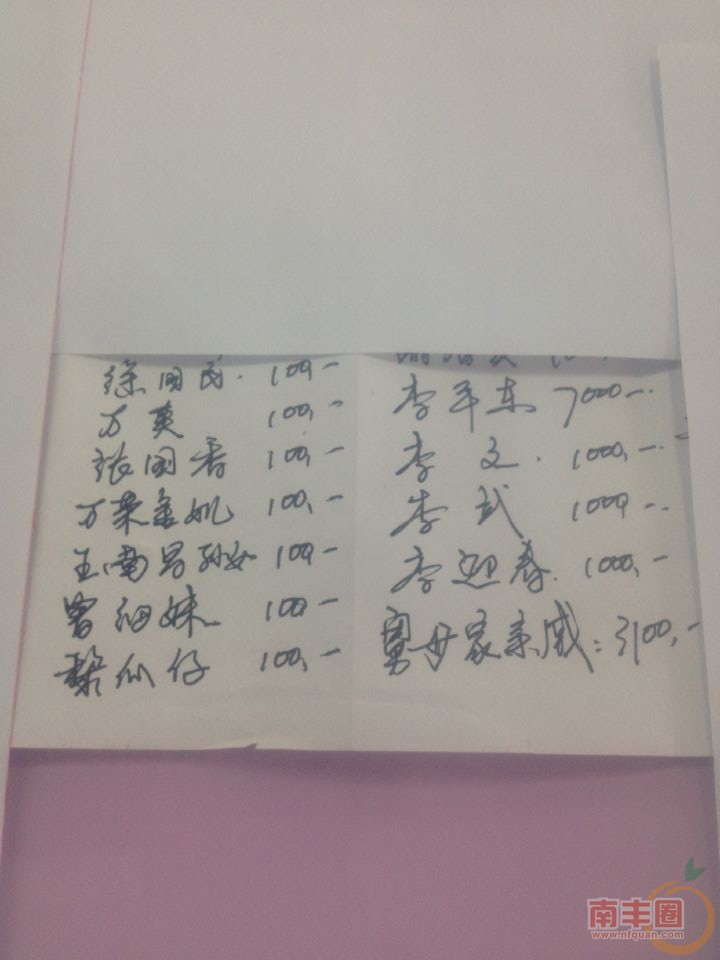 徐国民. 100,-
万英 100,-
张国香 100,-
万荣金 100,-
王南昌孙女 100-
曾细妹 100-
黎仙仔 100,-
李平东 7000-.
李 文. 1000,-.
李 武 1000-.
李迎春. 1000,-
舅母家亲戚: 3100,-
南丰圈
www.nfquan.com